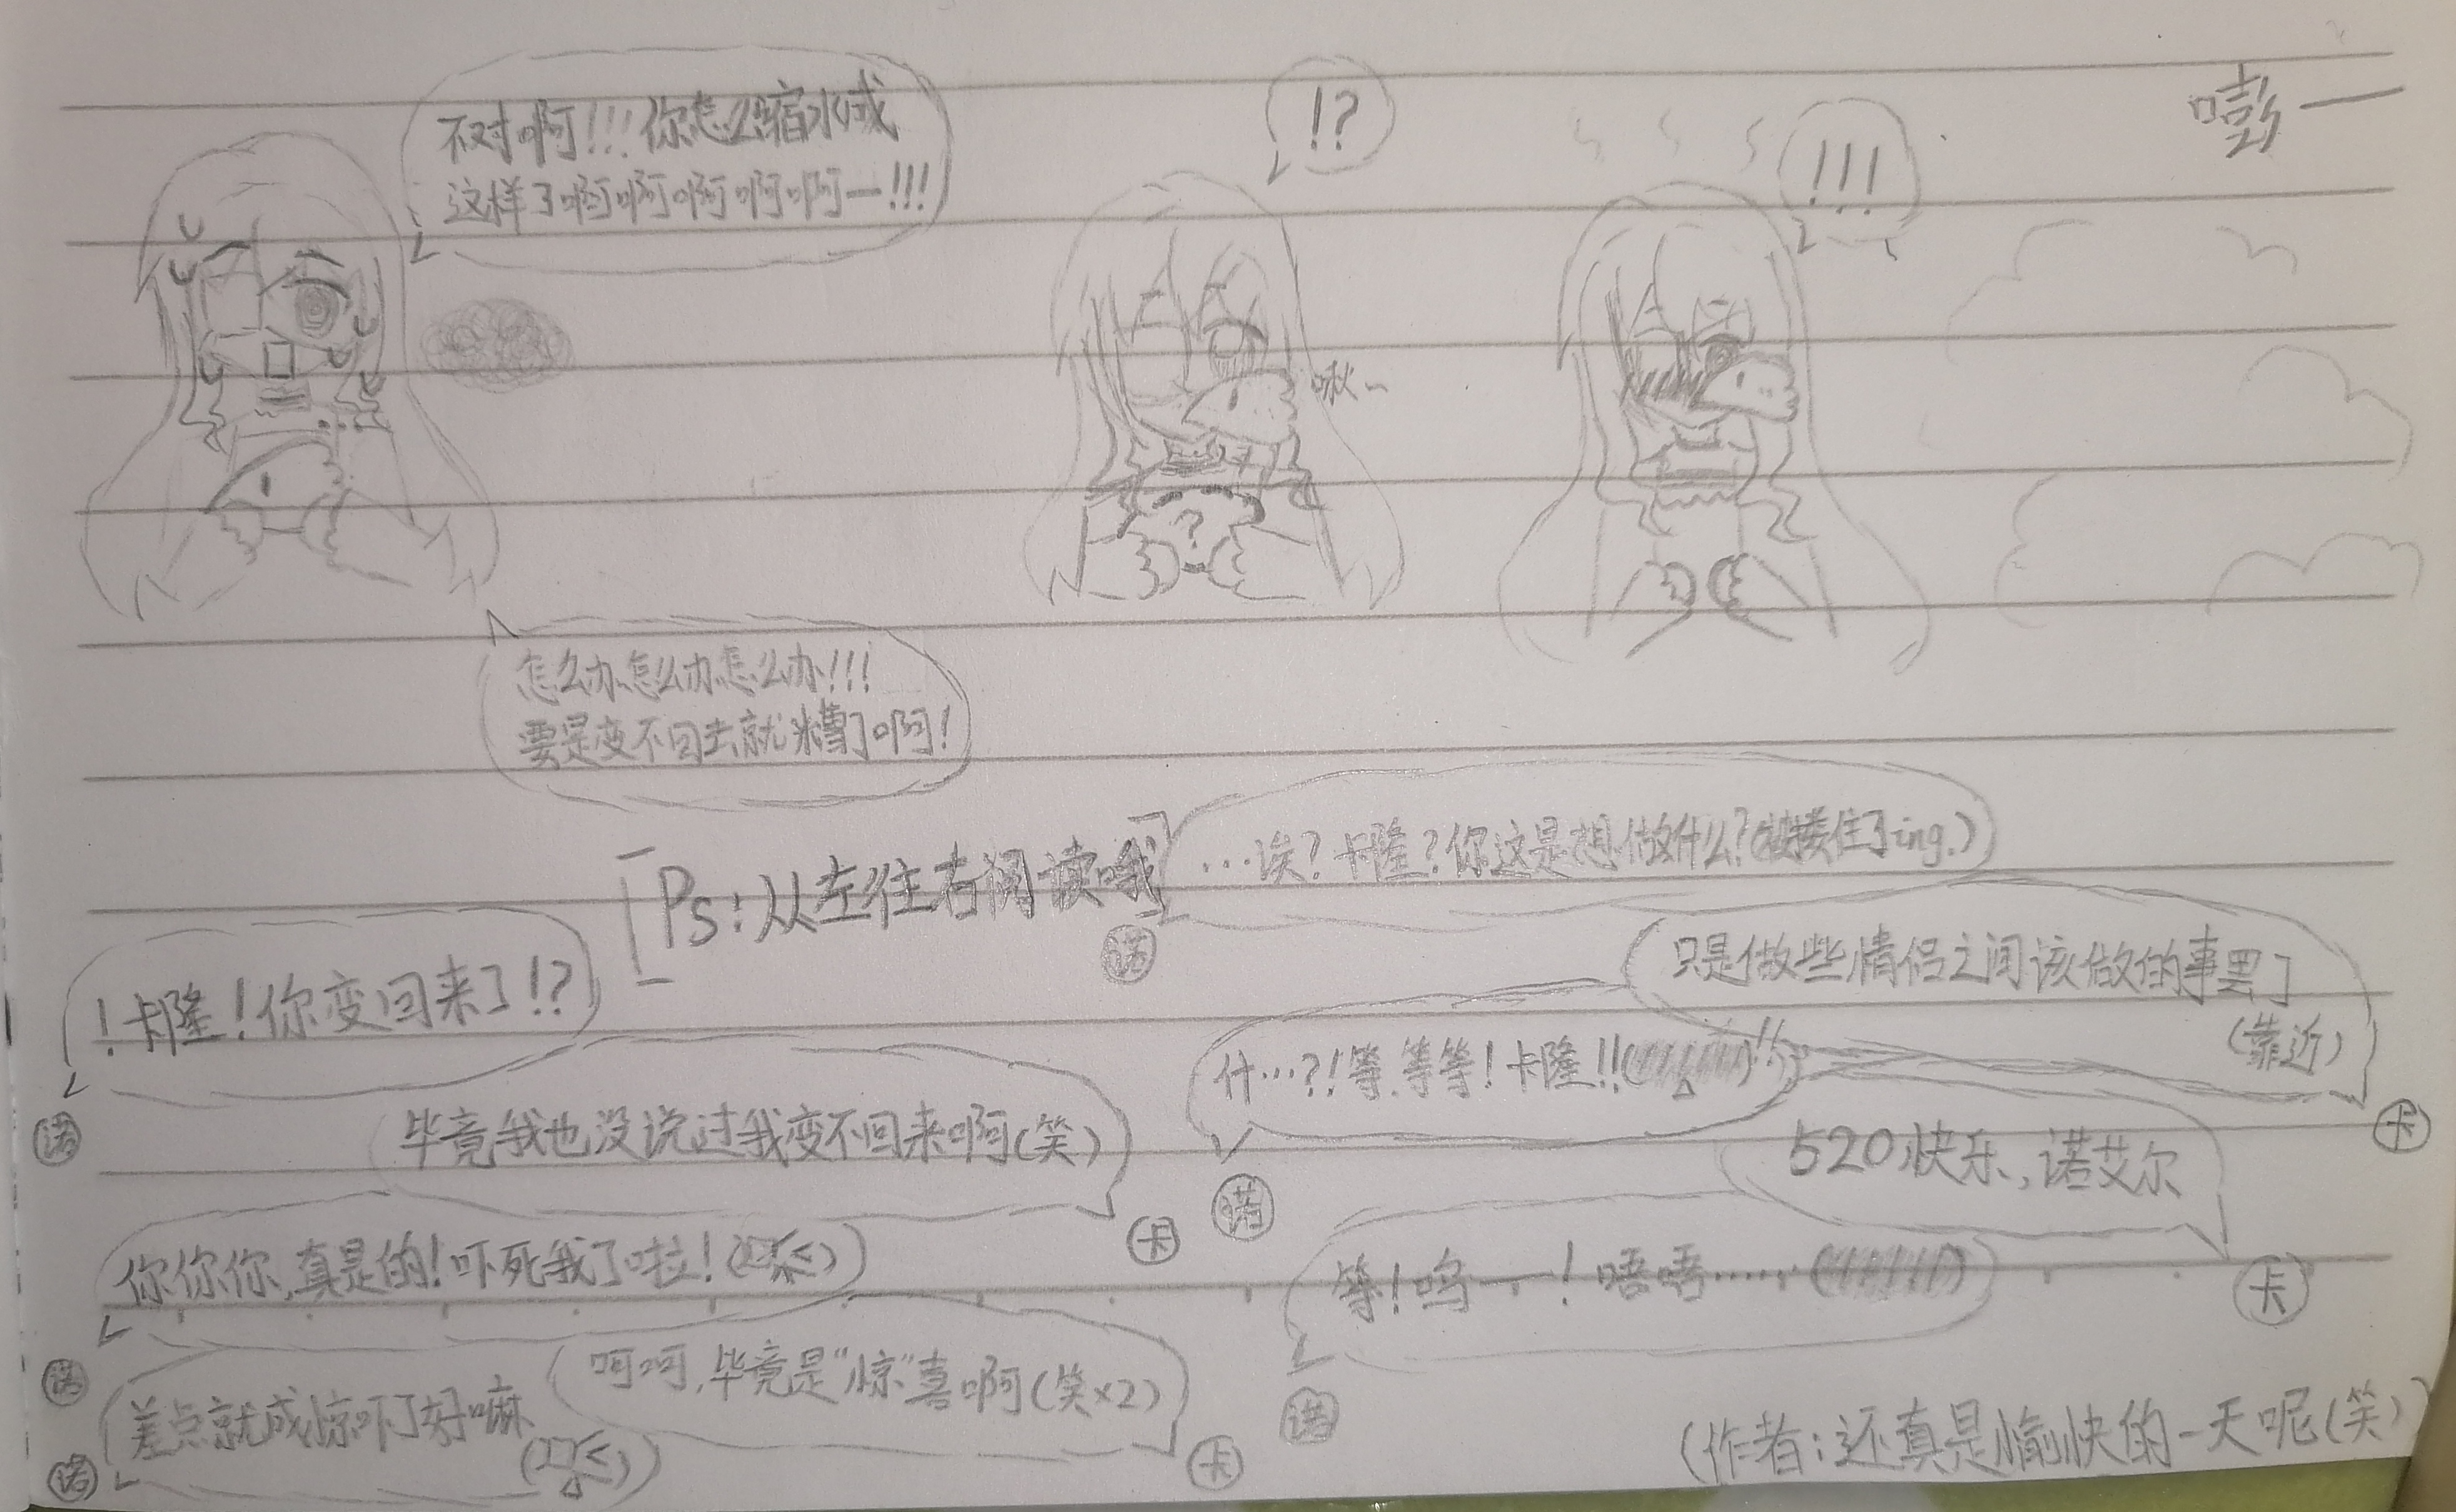 不对啊!!!你怎么缩水成
这样了啊啊啊啊啊一!!!
!?
啾~
!!!
嘭一
?
怎么办怎么办怎么办!!!
要是变不回去就糟了啊!
[Ps:从左往右阅读哦]
!卡隆!你变回来了!?
诺
毕竟我也没说过我变不回来啊(笑)
卡
你你你,真是的!吓死我了啦!
诺
呵呵,毕竟是“惊”喜啊(笑×2)
卡
差点就成惊吓了好嘛
诺
…诶?卡隆?你这是想做什么?(被搂住了ing.)
诺
只是做些情侣之间该做的事罢了
(靠近)
卡
什…?!等.等等!卡隆!!
诺
520快乐,诺艾尔
卡
等!呜一一!唔唔……
诺
(作者:还真是愉快的一天呢(笑)